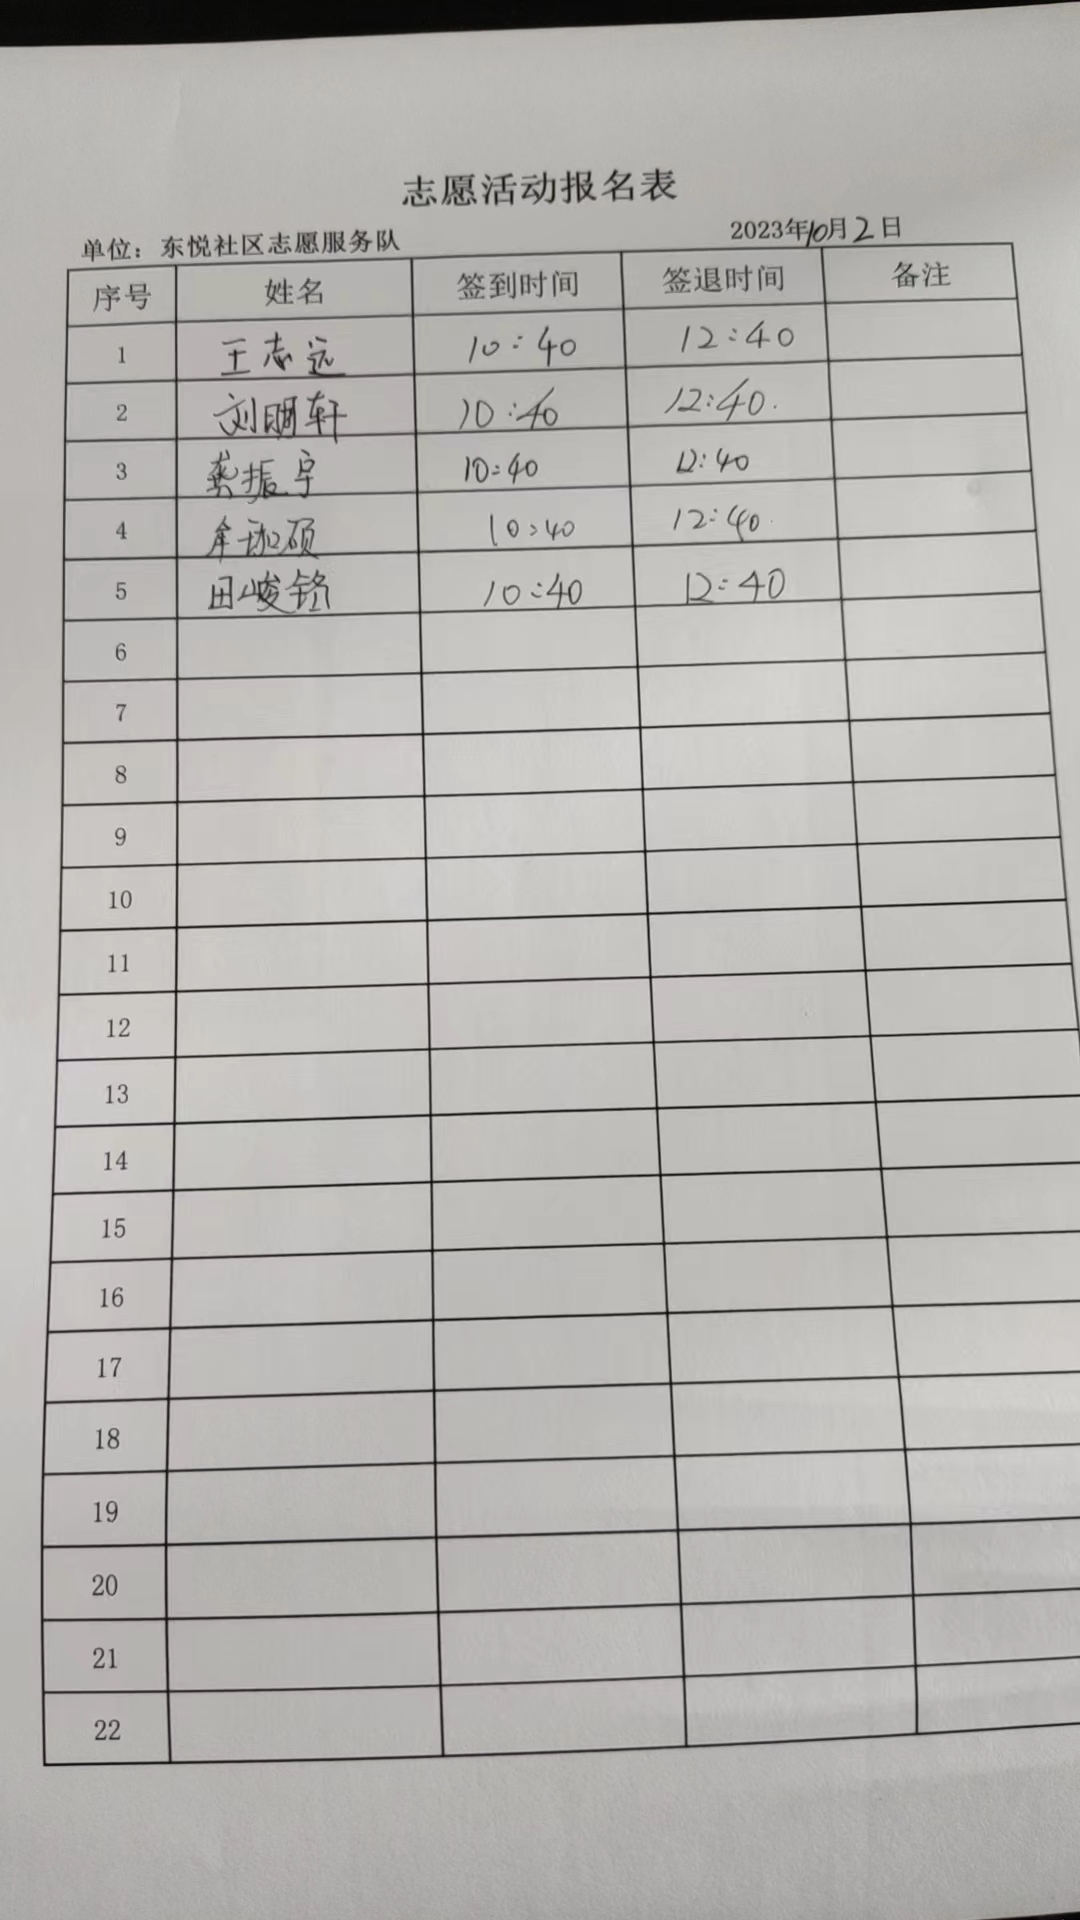 志愿活动报名表
单位：东悦社区志愿服务队 2023年10月2日
序号 姓名 签到时间 签退时间 备注
1 王志远 10:40 12:40
2 刘明轩 10:40 12:40.
3 龚振宇 10:40 12:40
4 硕 10:40 12:40.
5 田峻铭 10:40 12:40
6
7
8
9
10
11
12
13
14
15
16
17
18
19
20
21
22